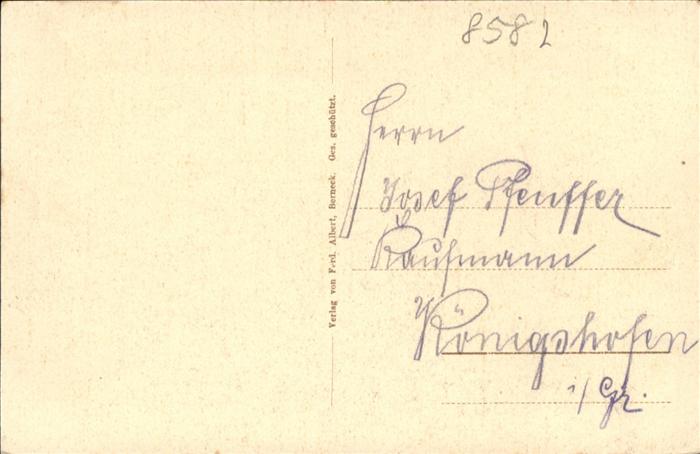 8582
Verlag von Ferd. Albert, Berneck. Ges. geschützt.
Herrn
Josef Pfeuffer
Kaufmann
Königshofen
i/Gr.